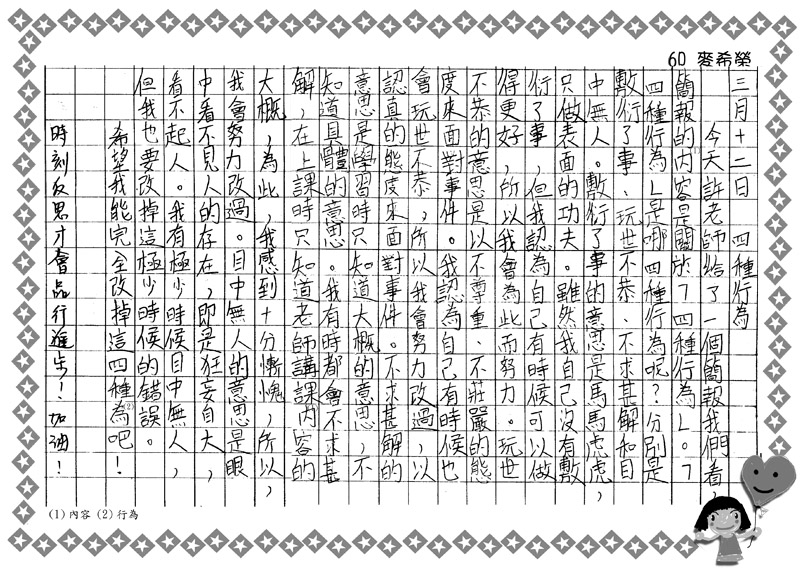 60 麥希榮
三月十二日 四種行為
今天許老師給了一個簡報我們看，
簡報的內容是關於「四種行為」。「
四種行為」是哪四種行為呢？分別是
敷衍了事、玩世不恭、不求甚解和目
中無人。敷衍了事的意思是馬馬虎虎，
只做表面的功夫。雖然我自己沒有敷
衍了事，但我認為自己有時候可以做
得更好，所以我會為此而努力。玩世
不恭的意思是以不尊重、不莊嚴的態
度來面對事件。我認為自己有時候也
會玩世不恭，所以我會努力改過，以
認真的態度來面對事件。不求甚解的
意思是學習時只知道大概的意思，不
知道具體的意思。我有時都會不求甚
解，在上課時只知道老師講課內容的
大概，為此，我感到十分慚愧，所以，
我會努力改過。目中無人的意思是眼
中看不見人的存在，即是狂妄自大，
看不起人。我有極少時候目中無人，
但我也要改掉這極少時候的錯誤。
希望我能完全改掉這四種為吧！
時刻反思才會品行進步！加油！
(1) 內容 (2) 行為